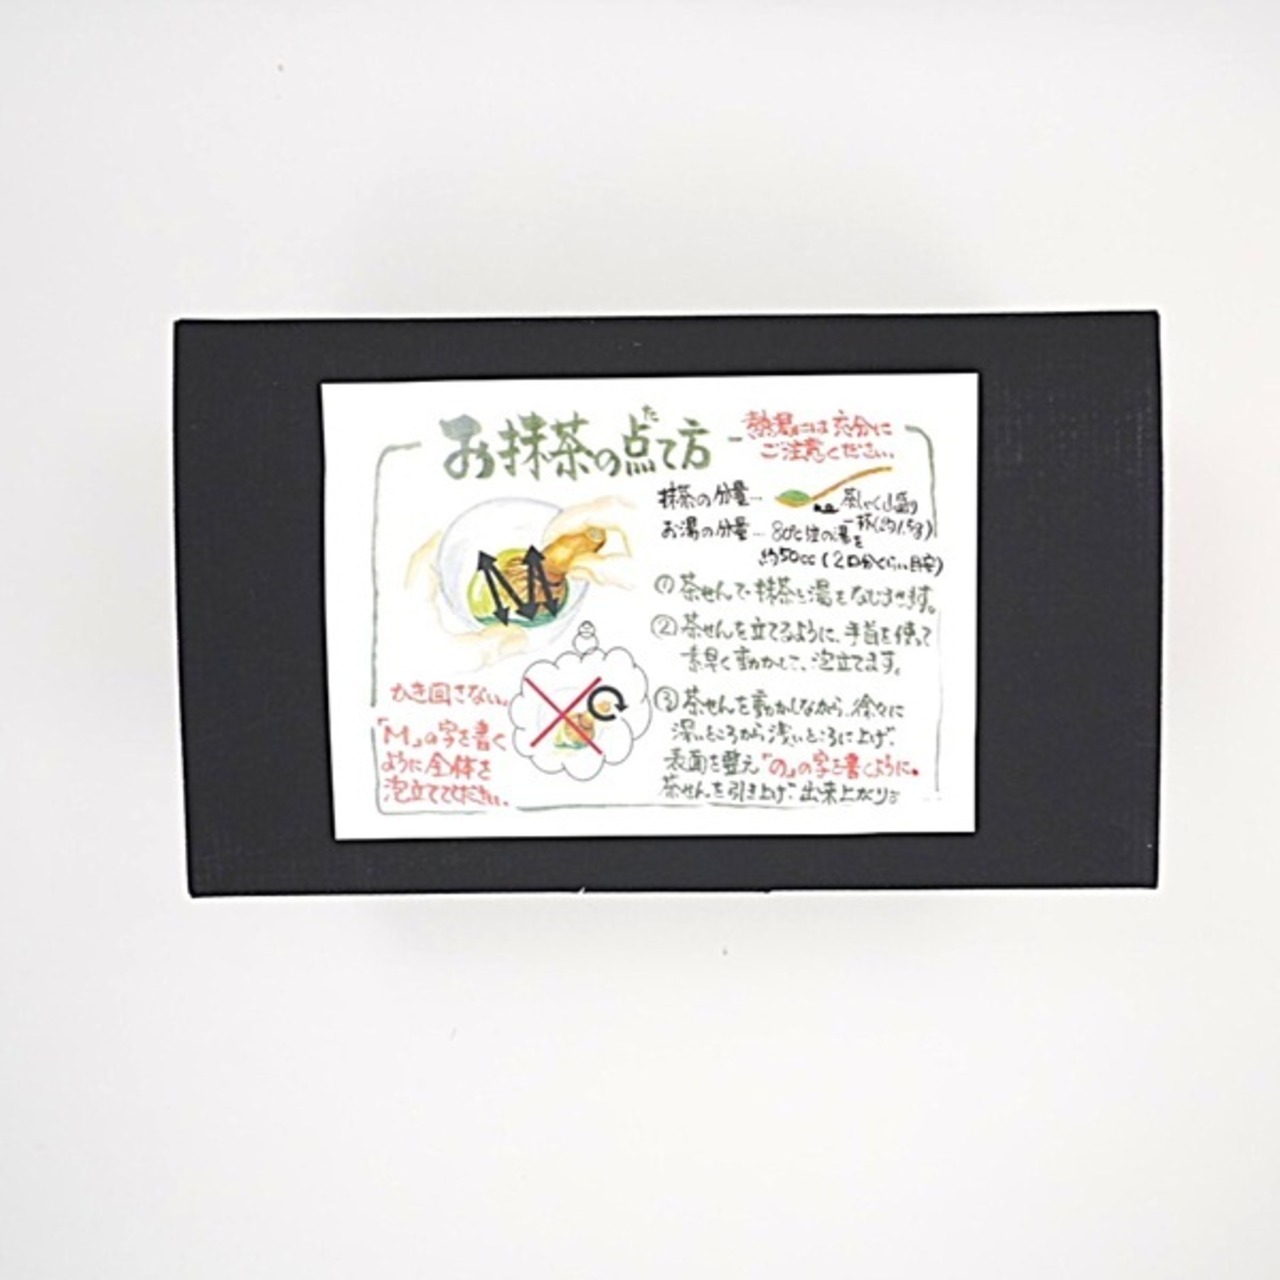 お抹茶の点て方
た
熱湯には充分に
ご注意ください。
抹茶の分量… 茶しゃく山盛り
一杯(約1.5g)
お湯の分量… 80℃位の湯を
約50cc(2口分くらい目安)
① 茶せんで抹茶と湯をなじませます。
② 茶せんを立てるように、手首を使って
素早く動かして、泡立てます。
③ 茶せんを動かしながら、徐々に
深いところから浅いところに上げ、
表面を整え「の」の字を書くように。
茶せんを引き上げ、出来上がり。
かき回さない。
「M」の字を書く
ように全体を
泡立ててください。